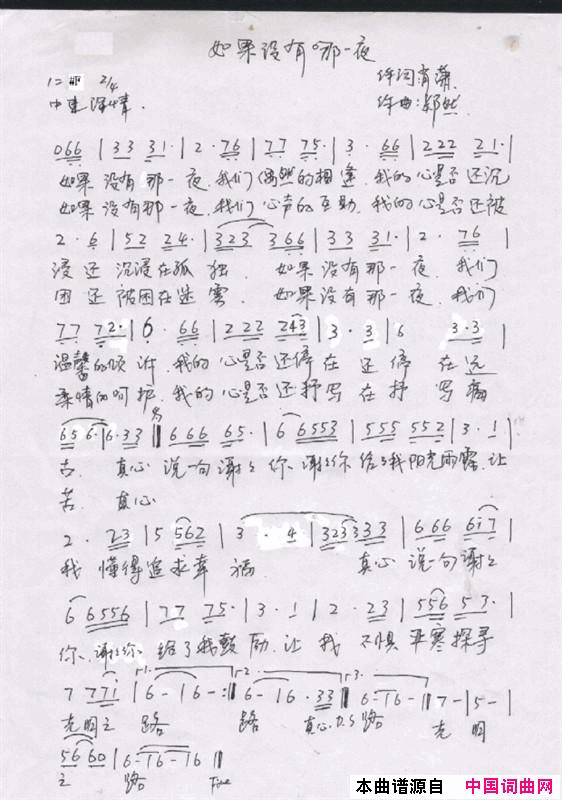 如果没有哪一夜
1= 2/4 作词肖潇
中速 深情. 作曲:郑然
066 | 33 31· | 2· 76 | 77 75· | 3· 66 | 222 21· |
如果没有那一夜.我们偶然的相逢.我的心是否还沉
如果没有那一夜.我们心声的互助.我的心是否还被
2· 6 | 52 24· | 323 366 | 33 31· | 2· 76 |
浸还沉浸在孤独. 如果没有那一夜.我们
困还被困在迷雾. 如果没有那一夜.我们
77 72· | 6· 66 | 222 243 | 3·3 | 6 3·3 |
温馨的倾许.我的心是否还停在还停在远
柔情的呵护.我的心是否还抒写在抒写痛
656· | 6·33 | 666 65· | 6 6553 | 555 552 | 3·1 |
古. 真心说一句谢谢你.谢谢你给了我阳光雨露.让
苦. 真心
2· 23 | 5 562 | 3· 4 | 323333 | 666 6i7 |
我懂得追求幸福 真心说一句谢谢
6 6556 | 77 75· | 3·1 | 2· 23 | 556 53· |
你.谢谢你给了我鼓励.让我不惧严寒探寻
7 77i | 6- | 6- :|| 6- | 6·33 || 6- | 6- || 7- | 5- |
光明之路 路 真心D.S路 光明
56 60 | 6- | 6- | 6 ||
之 路 Fine
本曲谱源自 中国词曲网